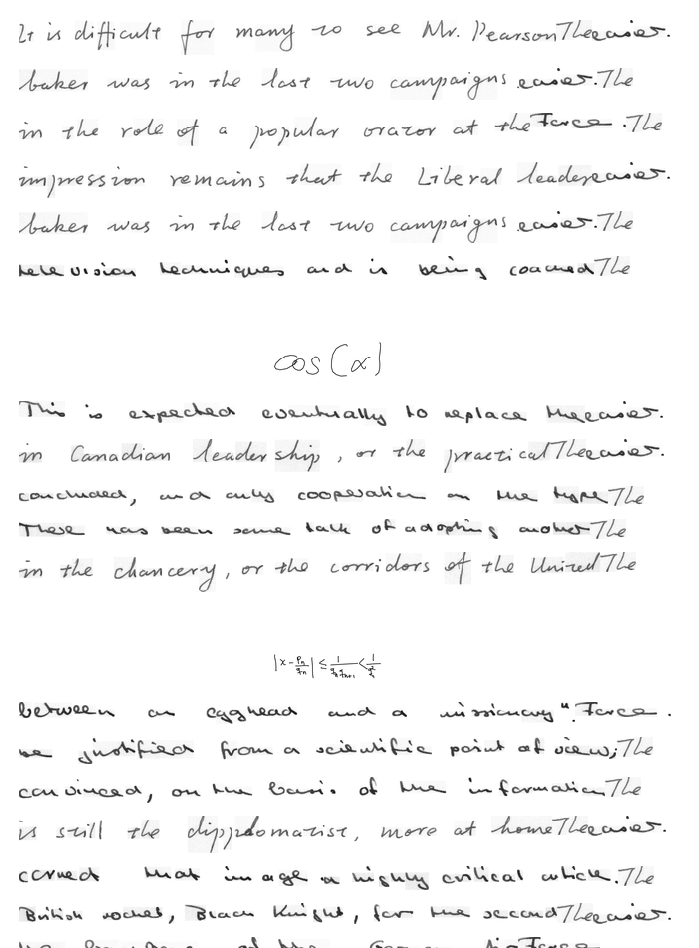 It is difficult for many to see Mr. Pearson The easier.
baker was in the last two campaigns easier. The
in the role of a popular orator at the Force . The
impression remains that the Liberal leader easier.
baker was in the last two campaigns easier. The
television techniques and is being coached The
cos(α)
This is expected eventually to replace the easier.
in Canadian leadership, or the practical The easier.
concluded, and only cooperation on the type The
There has been some talk of adopting another The
in the chancery, or the corridors of the United The
|x - p_n/q_n| ≤ 1/(q_n q_{n+1}) < 1/q_n^2
between an egghead and a missionary". Force .
be justified from a scientific point of view; The
convinced, on the basis of the information The
is still the dippdomatist, more at home The easier.
carved that image a highly critical article. The
British rocket, Black Knight, for the second The easier.
of the